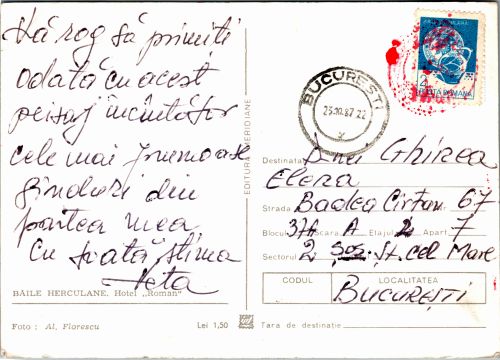 Vă rog să primiți
odată cu acest
peisaj încîntător
cele mai frumoase
gînduri din
partea mea
Cu toată stima
Neta
BĂILE HERCULANE. Hotel „Roman”
Foto : Al. Florescu
Lei 1,50
EDITURA MERIDIANE
BUCUREȘTI
POȘTA ROMÂNĂ
Destinatar Dnei Ghirea
Elena
Strada Badea Cîrțan 67
Bloc 37A Scara A Etajul 2 Apart. 7
Sectorul 2 Șos. Șt. cel Mare
CODUL
LOCALITATEA
BUCUREȘTI
Țara de destinație